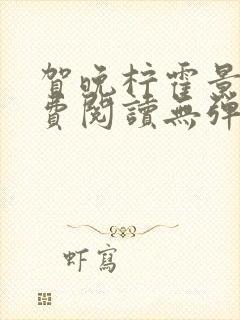 賀晚柠霍景
費閱讀無彈
虾寫